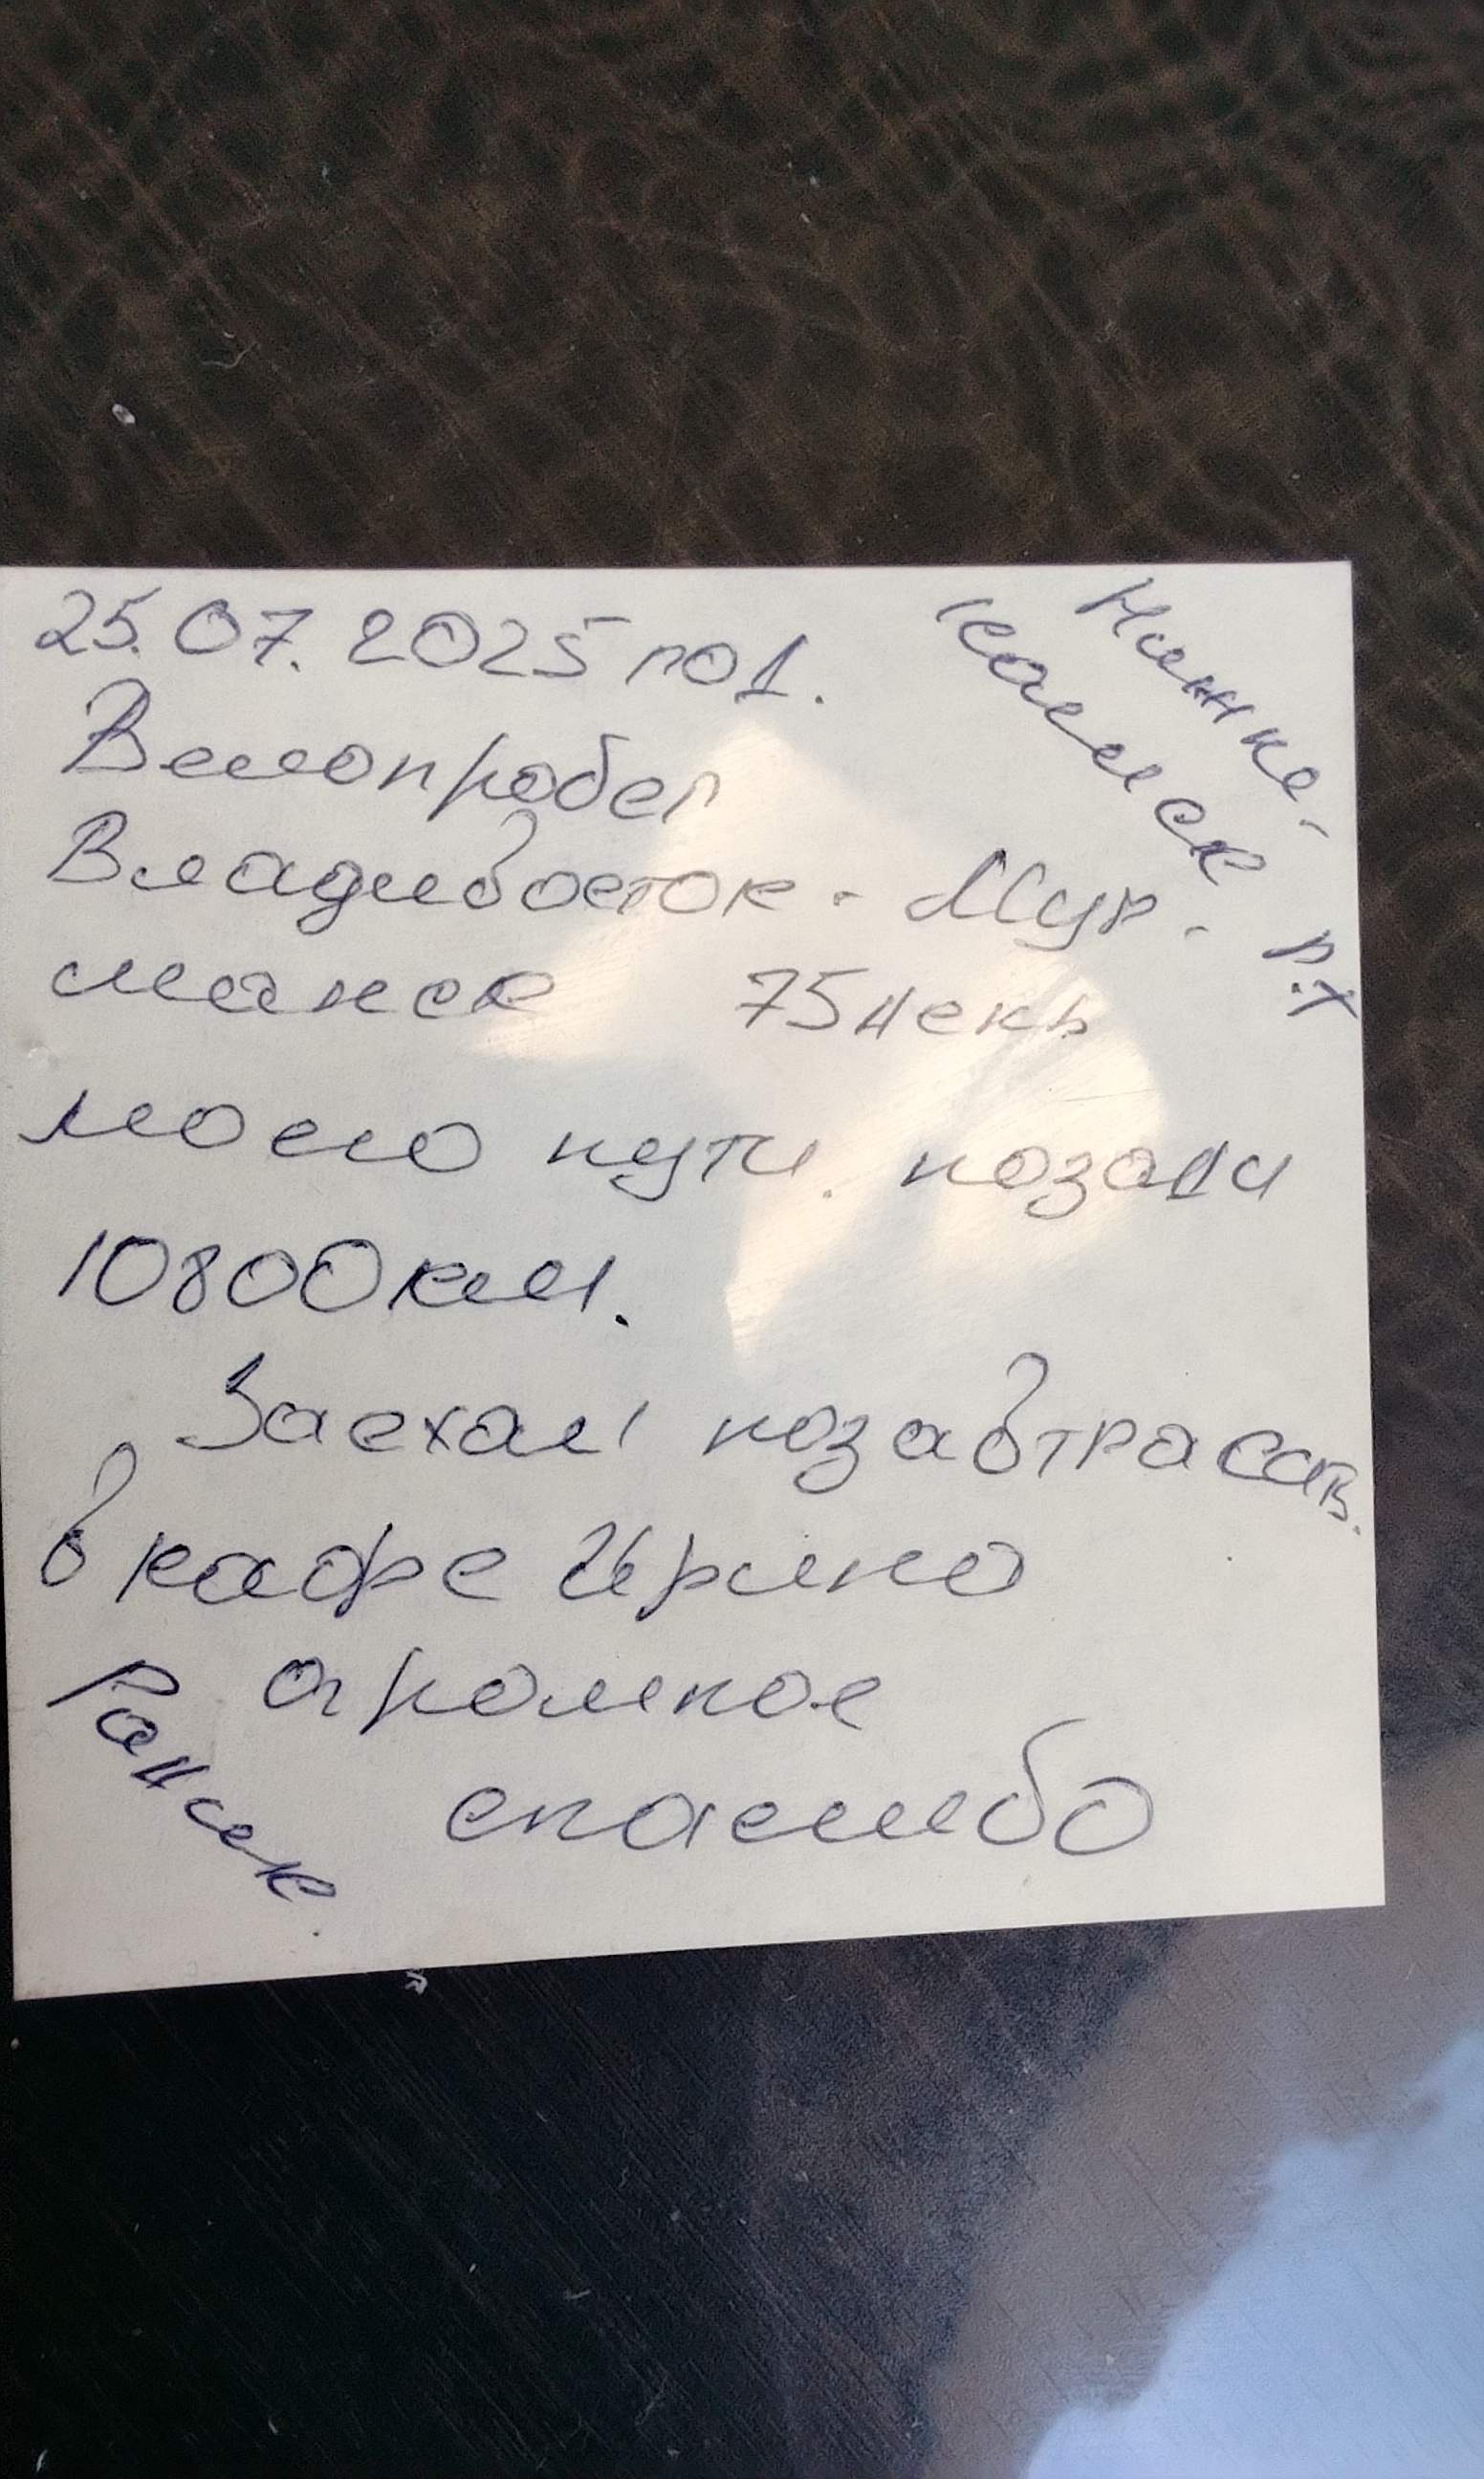 25.07.2025 год.
Нижне-
камск
р.т
Велопробег
Владивосток - Мур-
манск 75 день
моего пути. позади
10800 км.
Заехал позавтракать.
в кафе Ирина
огромное
спасибо